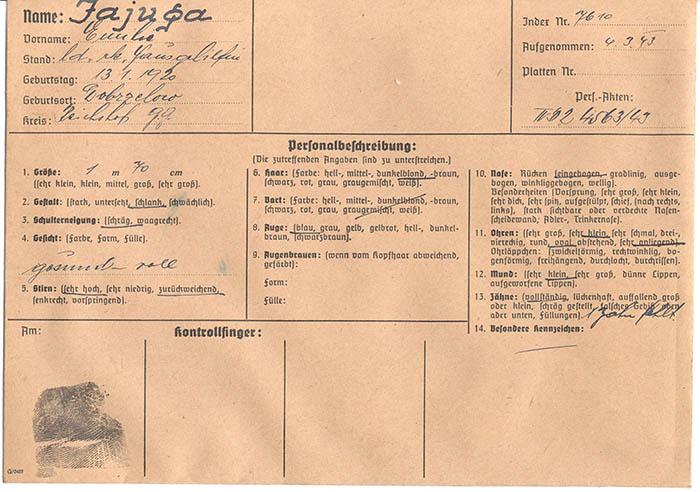 Name: Fajuga
Vorname:
Stand: led. rk. Hausgehilfin
Geburtstag: 13.1.1920
Geburtsort: Dobrzelow
Kreis:
Index Nr. 7610
Aufgenommen: 4.3.43
Platten Nr.
Perf.-Akten:
4563/43
Personalbeschreibung:
(Die zutreffenden Angaben sind zu unterstreichen.)
1. Größe: 1 m 70 cm
(sehr klein, klein, mittel, groß, sehr groß).
2. Gestalt: (stark, untersetzt, schlank, schwächlich).
3. Schulterneigung: (schräg, waagrecht).
4. Gesicht: (Farbe, Form, Fülle).
gesund - voll
5. Stirn: (sehr hoch, sehr niedrig, zurückweichend,
senkrecht, vorspringend).
6. Haar: (Farbe: hell-, mittel-, dunkelblond, -braun,
schwarz, rot, grau, graugemischt, weiß).
7. Bart: (Farbe: hell-, mittel-, dunkelblond, -braun,
schwarz, rot, grau, graugemischt, weiß).
8. Auge: (blau, grau, gelb, gelbrot, hell-, dunkel-
braun, schwarzbraun).
9. Augenbrauen: (wenn vom Kopfhaar abweichend,
gefärbt):
Form:
Fülle:
10. Nase: Rücken (eingebogen, gradlinig, ausge-
bogen, winkliggebogen, wellig).
Besonderheiten (Vorsprung, sehr groß, sehr klein,
sehr dick, sehr spin, aufgestülpt, schief, (nach rechts,
links), stark sichtbare oder verdeckte Nasen-
scheidewand; Adler-, Trinkernase).
11. Ohren: (sehr groß, sehr klein, sehr schmal, drei-,
viereckig, rund, oval, abstehend, sehr anliegend)
Ohrläppchen: (zwickelförmig, rechtwinklig, bo-
genförmig, freihängend, durchlocht, durchrissen).
12. Mund: (sehr klein, sehr groß, dünne Lippen,
aufgeworfene Lippen).
13. Zähne: (vollständig, lückenhaft, auffallend groß
oder klein, schräg gestellt, falsches Gebiß, ober
oder unten, Füllungen). 1 Zahn fehlt
14. Besondere Kennzeichen:
Am:
Kontrollfinger: